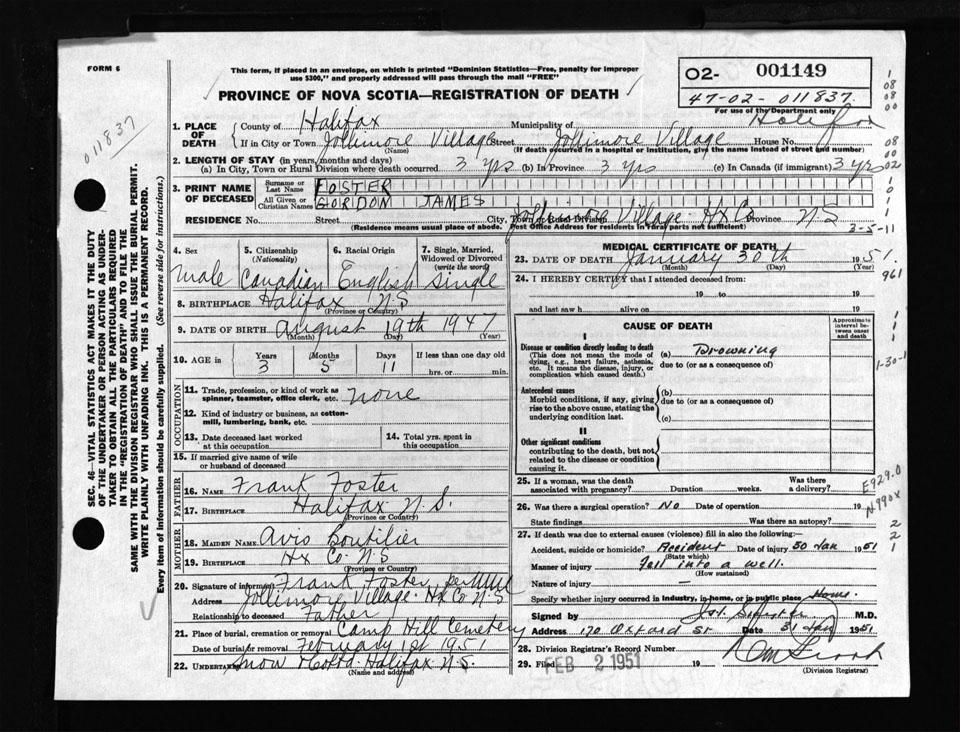 FORM 6
This form, if placed in an envelope, on which is printed "Dominion Statistics—Free, penalty for improper
use $300," and properly addressed will pass through the mail "FREE"
PROVINCE OF NOVA SCOTIA—REGISTRATION OF DEATH
O2- 001149
47-02-011837
For use of Department only
011837
1. PLACE OF DEATH
County of Halifax Municipality of Halifax
If in City or Town Jollimore Village Street Jollimore Village House No.
(Name) (If death occurred in a hospital or institution, give the name instead of street and number)
2. LENGTH OF STAY (in years, months and days)
(a) In City, Town or Rural Division where death occurred 3 yrs (b) In Province 3 yrs (c) In Canada (if immigrant) 3 yrs
3. PRINT NAME OF DECEASED
Surname or Last Name FOSTER
All Given or Christian Names GORDON JAMES
RESIDENCE No. Street City, Town or Rural Division Jollimore Village Hx Co Province N S
(Residence means usual place of abode. Post Office Address for residents in rural parts not sufficient)
3-5-11
4. Sex male
5. Citizenship (Nationality) Canadian
6. Racial Origin English
7. Single, Married, Widowed or Divorced (write the word) Single
8. BIRTHPLACE Halifax N.S
(Province or Country)
9. DATE OF BIRTH August 19th 1947
(Month) (Day) (Year)
10. AGE in Years 3 Months 5 Days 11 If less than one day old hrs. or min.
OCCUPATION
11. Trade, profession, or kind of work as spinner, teamster, office clerk, etc. none
12. Kind of industry or business, as cotton-mill, lumbering, bank, etc.
13. Date deceased last worked at this occupation
14. Total yrs. spent in this occupation
15. If married give name of wife or husband of deceased
FATHER
16. NAME Frank Foster
17. BIRTHPLACE Halifax N.S.
(Province or Country)
MOTHER
18. MAIDEN NAME Avis Boutilier
19. BIRTHPLACE Hx Co. N.S
(Province or Country)
20. Signature of informant Frank Foster per
Address Jollimore Village Hx Co N.S
Relationship to deceased Father
21. Place of burial, cremation or removal Camp Hill Cemetery
Date of burial or removal February 1st 1951
22. UNDERTAKER Snow & Co Ltd. Halifax N.S.
(Name and address)
MEDICAL CERTIFICATE OF DEATH
23. DATE OF DEATH January 30th 1951.
(Month) (Day) (Year)
24. I HEREBY CERTIFY that I attended deceased from:
19 to 19
and last saw h alive on 19
CAUSE OF DEATH
Approximate interval between onset and death
I
Disease or condition directly leading to death
(This does not mean the mode of dying, e.g., heart failure, asthenia, etc. It means the disease, injury, or complication which caused death.)
(a) Drowning
due to (or as a consequence of)
Antecedent causes
Morbid conditions, if any, giving rise to the above cause, stating the underlying condition last.
(b)
due to (or as a consequence of)
(c)
II
Other significant conditions
contributing to the death, but not related to the disease or condition causing it.
25. If a woman, was the death associated with pregnancy? Duration weeks. Was there a delivery?
26. Was there a surgical operation? No Date of operation 19
State findings Was there an autopsy?
27. If death was due to external causes (violence) fill in also the following:—
Accident, suicide or homicide? Accident Date of injury 30 Jan 1951
(State which)
Manner of injury Fell into a well.
(How sustained)
Nature of injury —
Specify whether injury occurred in Industry, in home, or in public place Home.
Signed by M.D.
Address 170 Oxford St Date 31 Jan 1951
28. Division Registrar's Record Number
29. Filed FEB 2 1951 19
(Division Registrar)
961
1-30-1
E929.0
N990X
SEC. 46—VITAL STATISTICS ACT MAKES IT THE DUTY
OF THE UNDERTAKER OR PERSON ACTING AS UNDER-
TAKER TO OBTAIN ALL THE PARTICULARS REQUIRED
IN THE "REGISTRATION OF DEATH" AND TO FILE THE
SAME WITH THE DIVISION REGISTRAR WHO SHALL ISSUE THE BURIAL PERMIT.
WRITE PLAINLY WITH UNFADING INK. THIS IS A PERMANENT RECORD.
Every item of information should be carefully supplied. (See reverse side for instructions.)